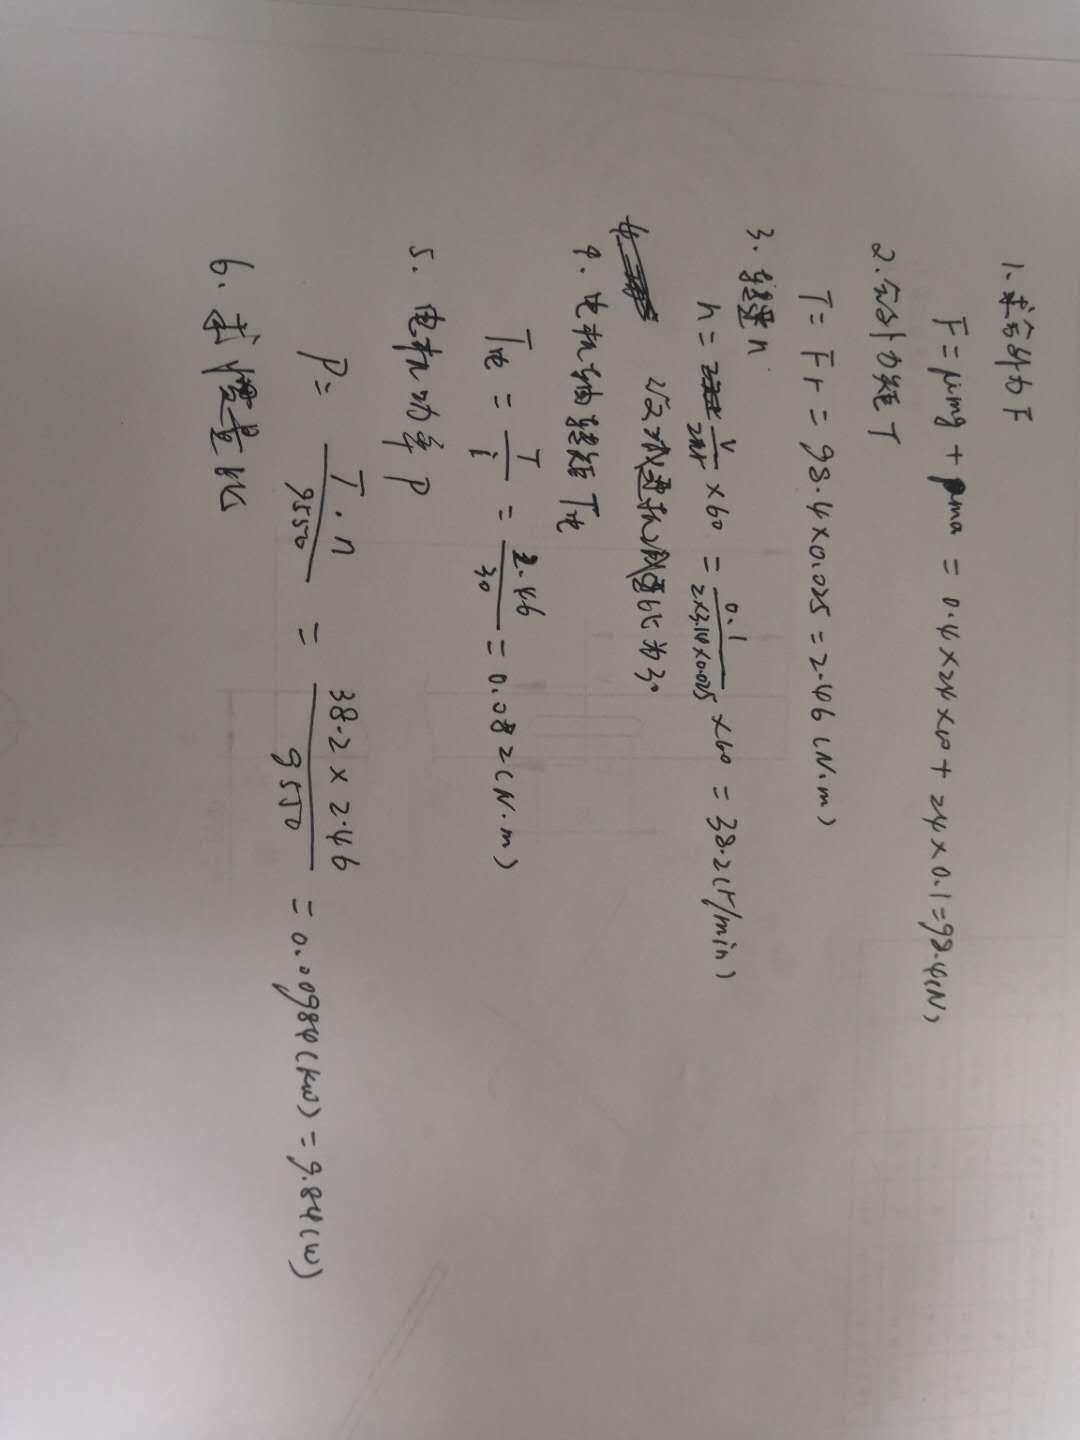 1.求合外力F
F=μmg+ma=0.4×24×10+24×0.1=98.4(N)
2.合外力矩T
T=Fr=98.4×0.025=2.46(N·m)
3.转速n.
n= v/2πr ×60 = 0.1/2×3.14×0.025 ×60 = 38.2(r/min)
减速机减速比为30
4.电机轴转矩T电
T电 = T/i = 2.46/30 = 0.082(N·m)
5.电机功率P
P= T·n/9550 = 38.2×2.46/9550 = 0.00984(kw)=9.84(w)
6.求惯量比